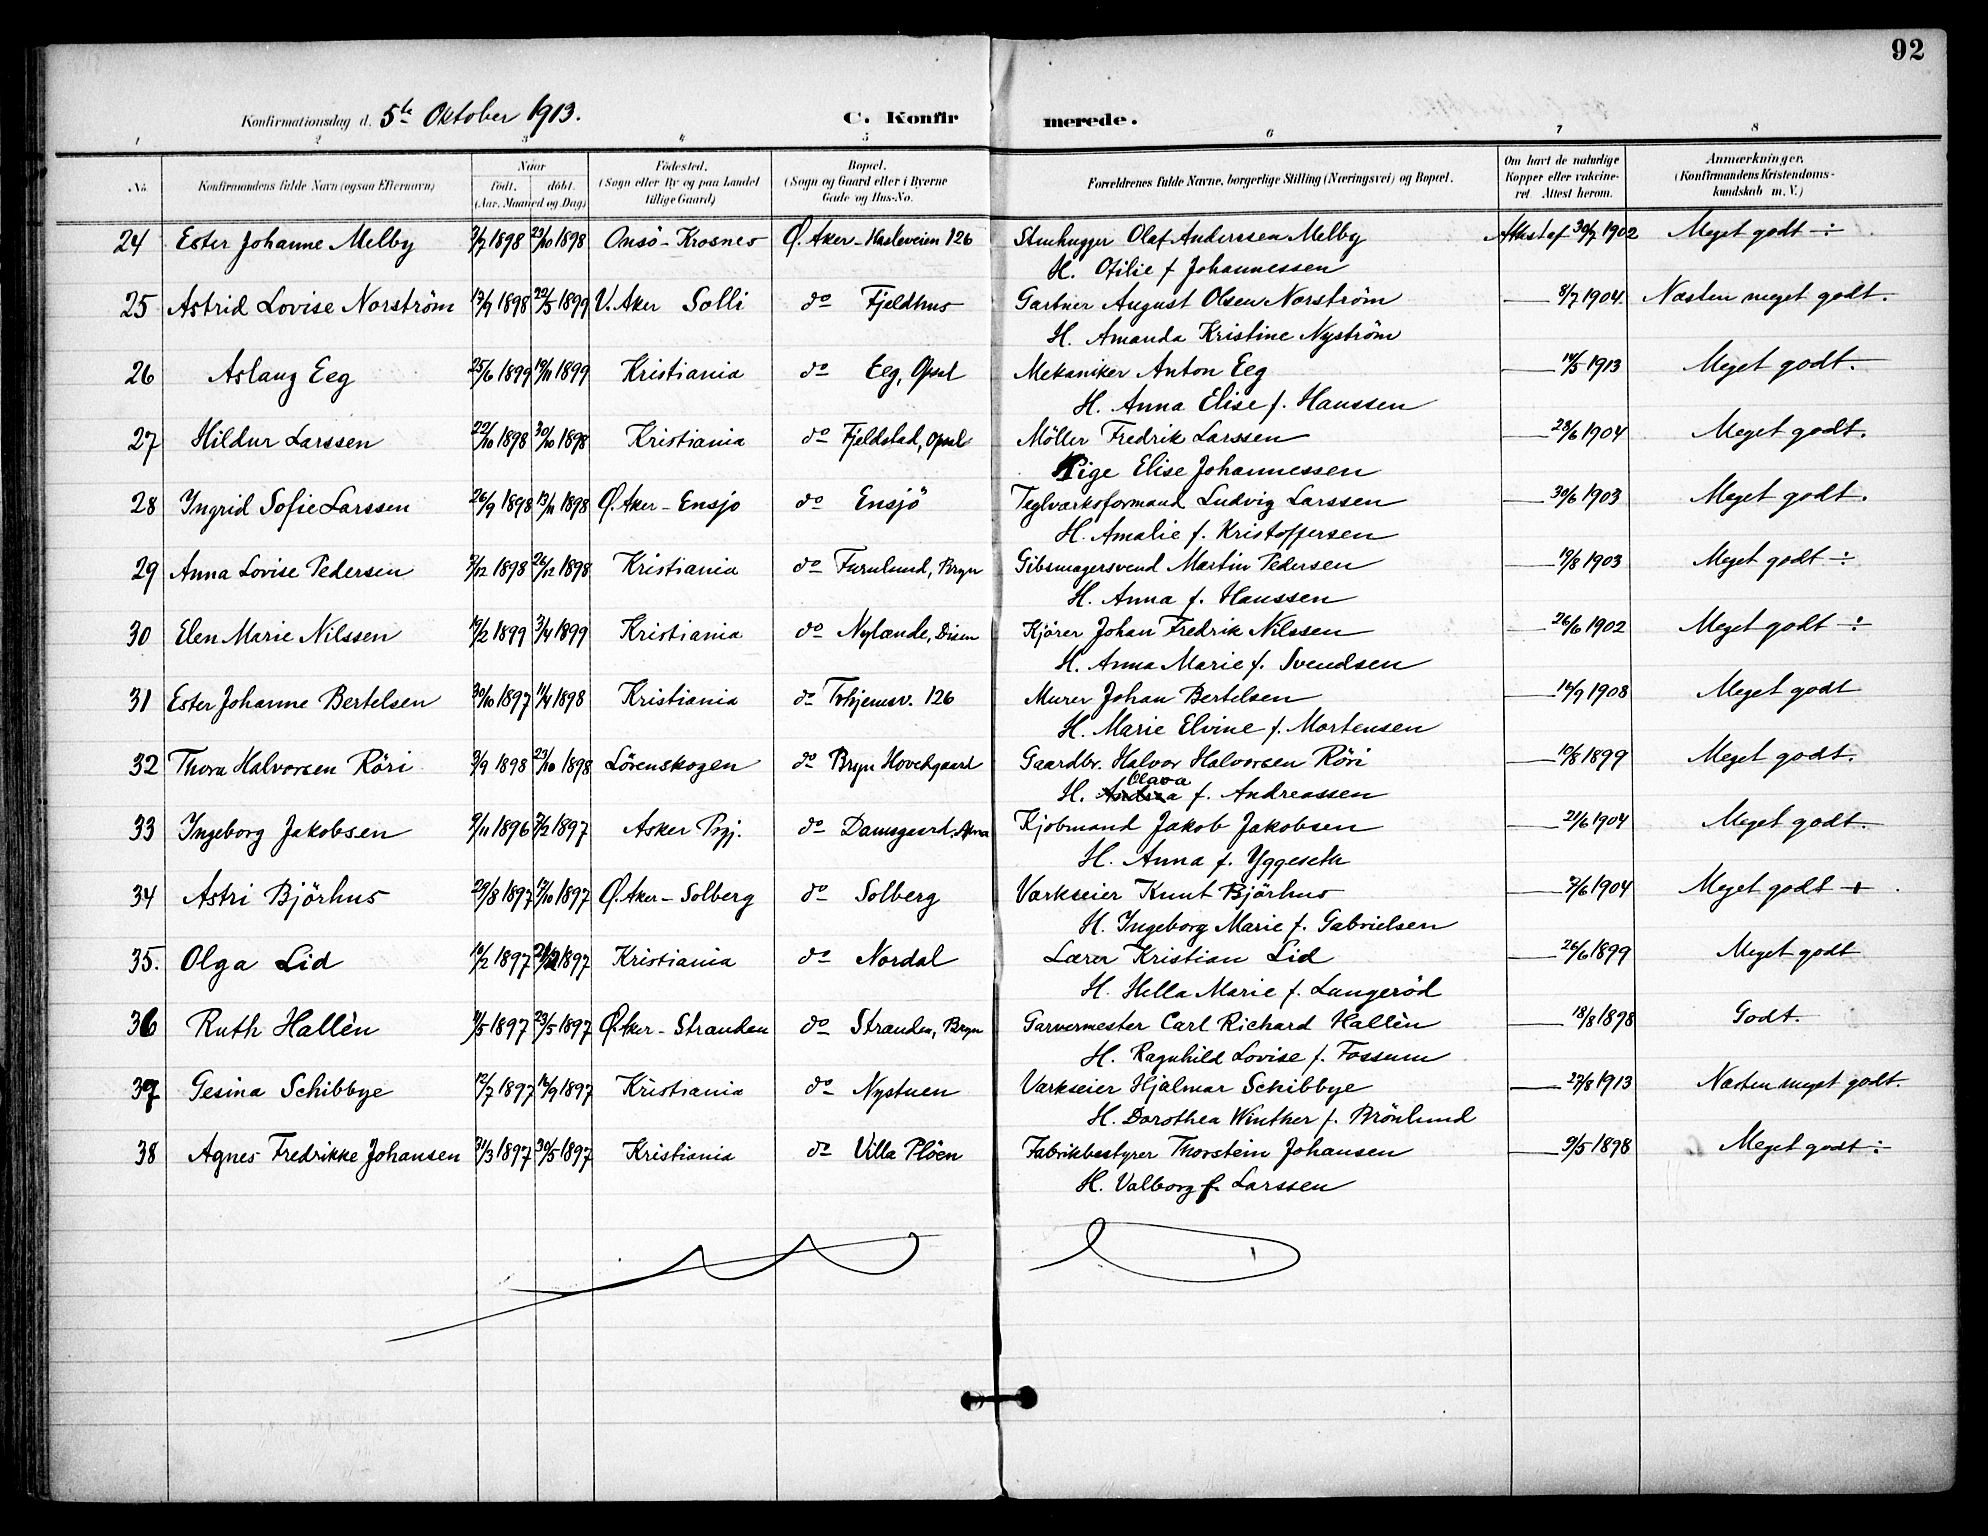 92
Konfirmationsdag d. 5te Oktober 1913. C. Konfirmerede.
1 2 3 4 5 6 7 8
No. Konfirmandens fulde Navn (ogsaa Efternavn) Naar født. døbt. (Aar, Maaned og Dag) Fødested. (Sogn eller By og paa Landet tillige Gaard) Bopæl. (Sogn og Gaard eller i Byerne Gade og Hus-No. Forældrenes fulde Navne, borgerlige Stilling (Næringsvei) og Bopæl. Om havt de naturlige Kopper eller vakcineret Attest herom. Anmærkninger. (Konfirmandens Kristendomskundskab m. V.)
24 Ester Johanne Melby 2/7 1898 23/10 1898 Onsö - Krosnes Ø. Aker - Hasleveien 126 Stenhugger Olaf Anderssen Melby Attest af 30/7 1902 Meget godt ÷
H. Otilie f Johannessen
25 Astrid Lovise Norström 13/9 1898 22/5 1899 V. Aker Solli do Fjeldhus Gartner August Olsen Norström — 8/7 1904. Næsten meget godt.
H. Amanda Kristine Nyström
26 Aslaug Eeg 25/6 1899 19/11 1899 Kristiania do Eeg, Opsal Mekaniker Anton Eeg — 14/5 1913 Meget godt.
H. Anna Elise f. Hanssen
27 Hildur Larssen 22/10 1898 30/10 1898 Kristiania do Fjeldstad, Opsal Möller Fredrik Larssen — 28/6 1904 Meget godt.
Pige Elise Johannessen
28 Ingrid Sofie Larssen 26/9 1898 13/11 1898 Ø. Aker - Ensjo do Ensjö Teglværksformand Ludvig Larssen — 30/6 1903 Meget godt.
H. Amalie f. Kristoffersen
29 Anna Lovise Pedersen 2/12 1898 26/12 1898 Kristiania do Furulund, Bryn Gibsmagersvend Martin Pedersen — 19/8 1903 Meget godt ÷
H. Anna f. Hanssen
30 Elen Marie Nilssen 17/2 1899 3/4 1899 Kristiania do Nylænde, Disen Kjörer Johan Fredrik Nilssen — 26/6 1902 Meget godt ÷
H. Anna Marie f. Svendsen
31 Ester Johanne Bertelsen 30/10 1897 11/4 1898 Kristiania do 126 Murer Johan Bertelsen — 14/9 1908 Meget godt
H. Marie Elvine f. Mortensen
32 Thora Halvorsen Röri 3/9 1898 23/10 1898 Lörenskogen do Bryn Hovedgaard Gaardbr. Halvor Halvorsen Röri — 10/8 1899 Meget godt.
H. Andrea Olava f. Andreassen
33 Ingeborg Jakobsen 9/11 1896 7/2 1897 Asker Prgj. do Damsgaard, Alna Kjobmand Jakob Jakobsen — 21/6 1904 Meget godt.
H. Anna f. Yggeseth
34 Astri Björhus 29/8 1897 17/10 1897 Ø. Aker - Solberg do Solberg Værkseier Knut Björhus — 7/6 1904 Meget godt +
H. Ingeborg Marie f. Gabrielsen
35. Olga Lid 10/2 1897 1897 Kristiania do Nordal Lærer Kristian Lid — 26/6 1899 Meget godt
H. Hella Marie f. Langeröd
36 Ruth Hallèn 11/5 1897 23/5 1897 Ø. Aker - Stranden do Stranden, Bryn Garvermester Carl Richard Hallèn — 18/8 1898 Godt.
H. Ragnhild Lovise f. Fossum
37 Gesina Schibbye 12/7 1897 12/9 1897 Kristiania do Nystuen Værkseier Hjalmar Schibbye — 27/8 1913 Næsten meget godt.
H. Dorothea Winther f. Brönlund
38 Agnes Fredrikke Johansen 31/3 1897 30/5 1897 Kristiania do Villa Plöen Fabrikbestyrer Thorstein Johansen — 9/5 1898 Meget godt ÷
H. Valborg f. Larssen